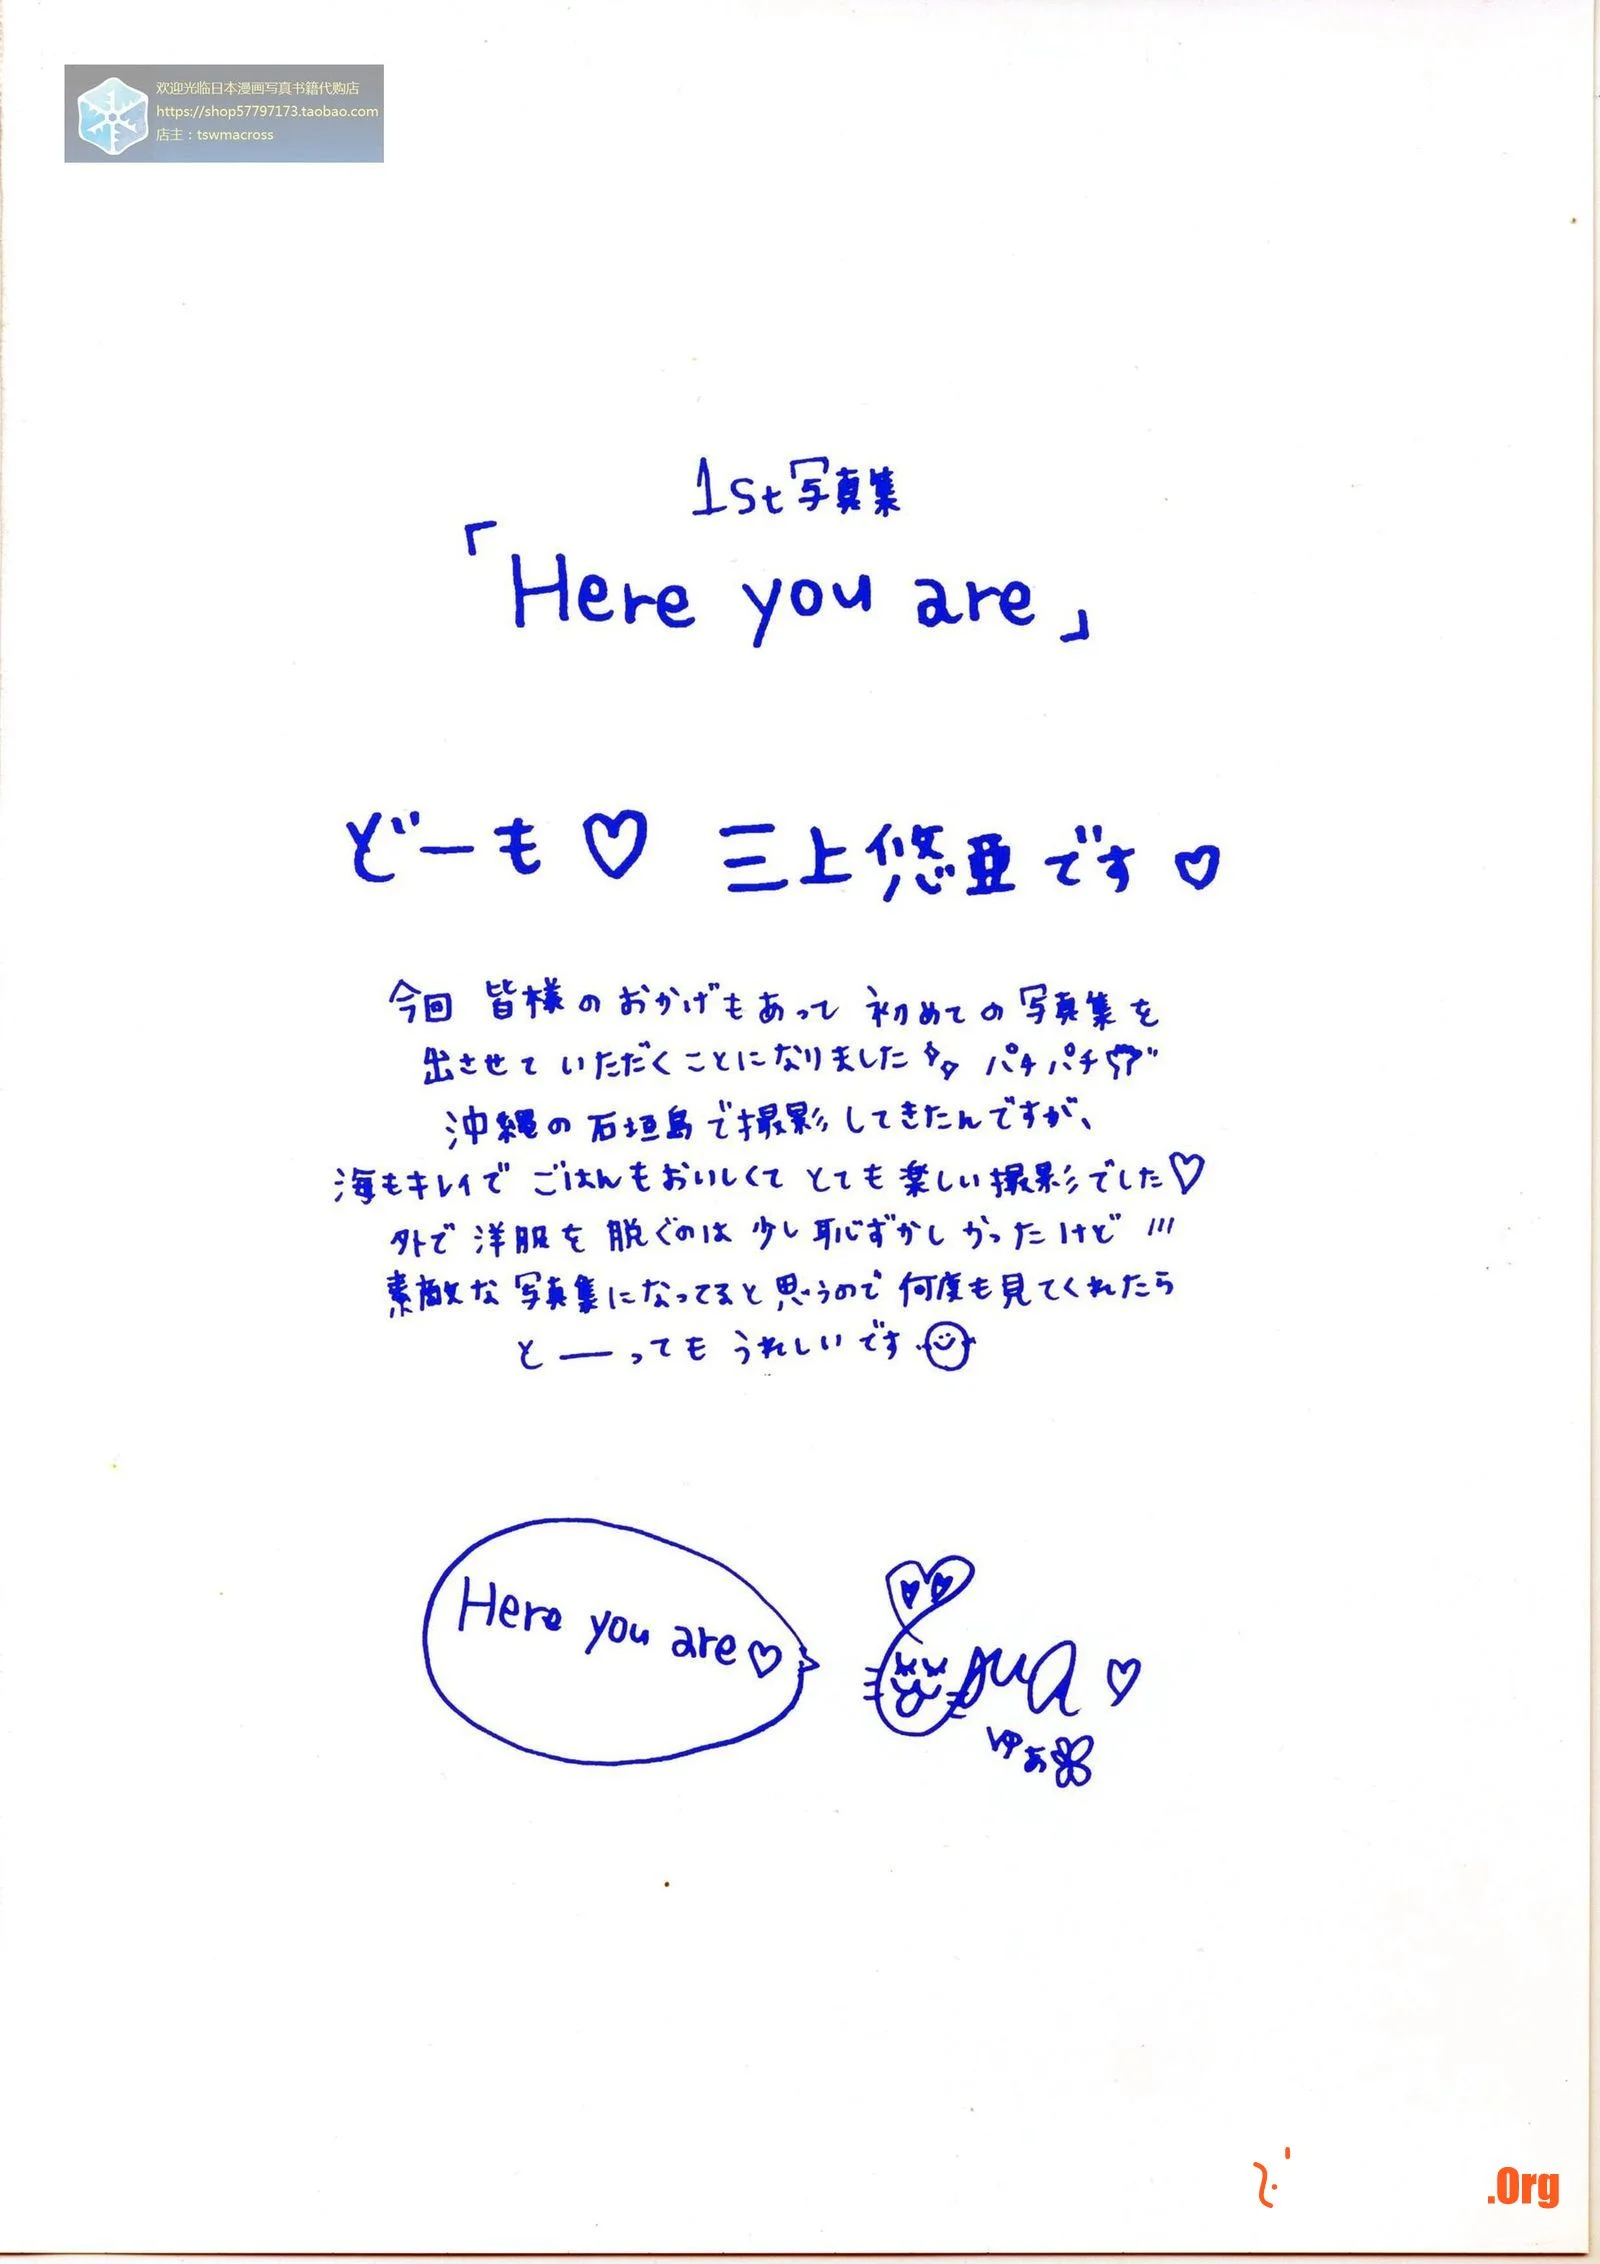 欢迎光临日本漫画写真书籍代购店
https://shop57797173.taobao.com
店主：tswmacross
1st写真集
「Here you are」
どーも♡ 三上悠亜です♡
今回 皆様のおかげもあって 初めての写真集を
出させていただくことになりました パチパチ
沖縄の石垣島で撮影してきたんですが、
海もキレイで ごはんもおいしくて とても楽しい撮影でした♡
外で洋服を脱ぐのは少し恥ずかしかったけど
素敵な写真集になってると思うので何度も見てくれたら
と――ってもうれしいです
Here you are♡
yua♡
ゆあ
.Org